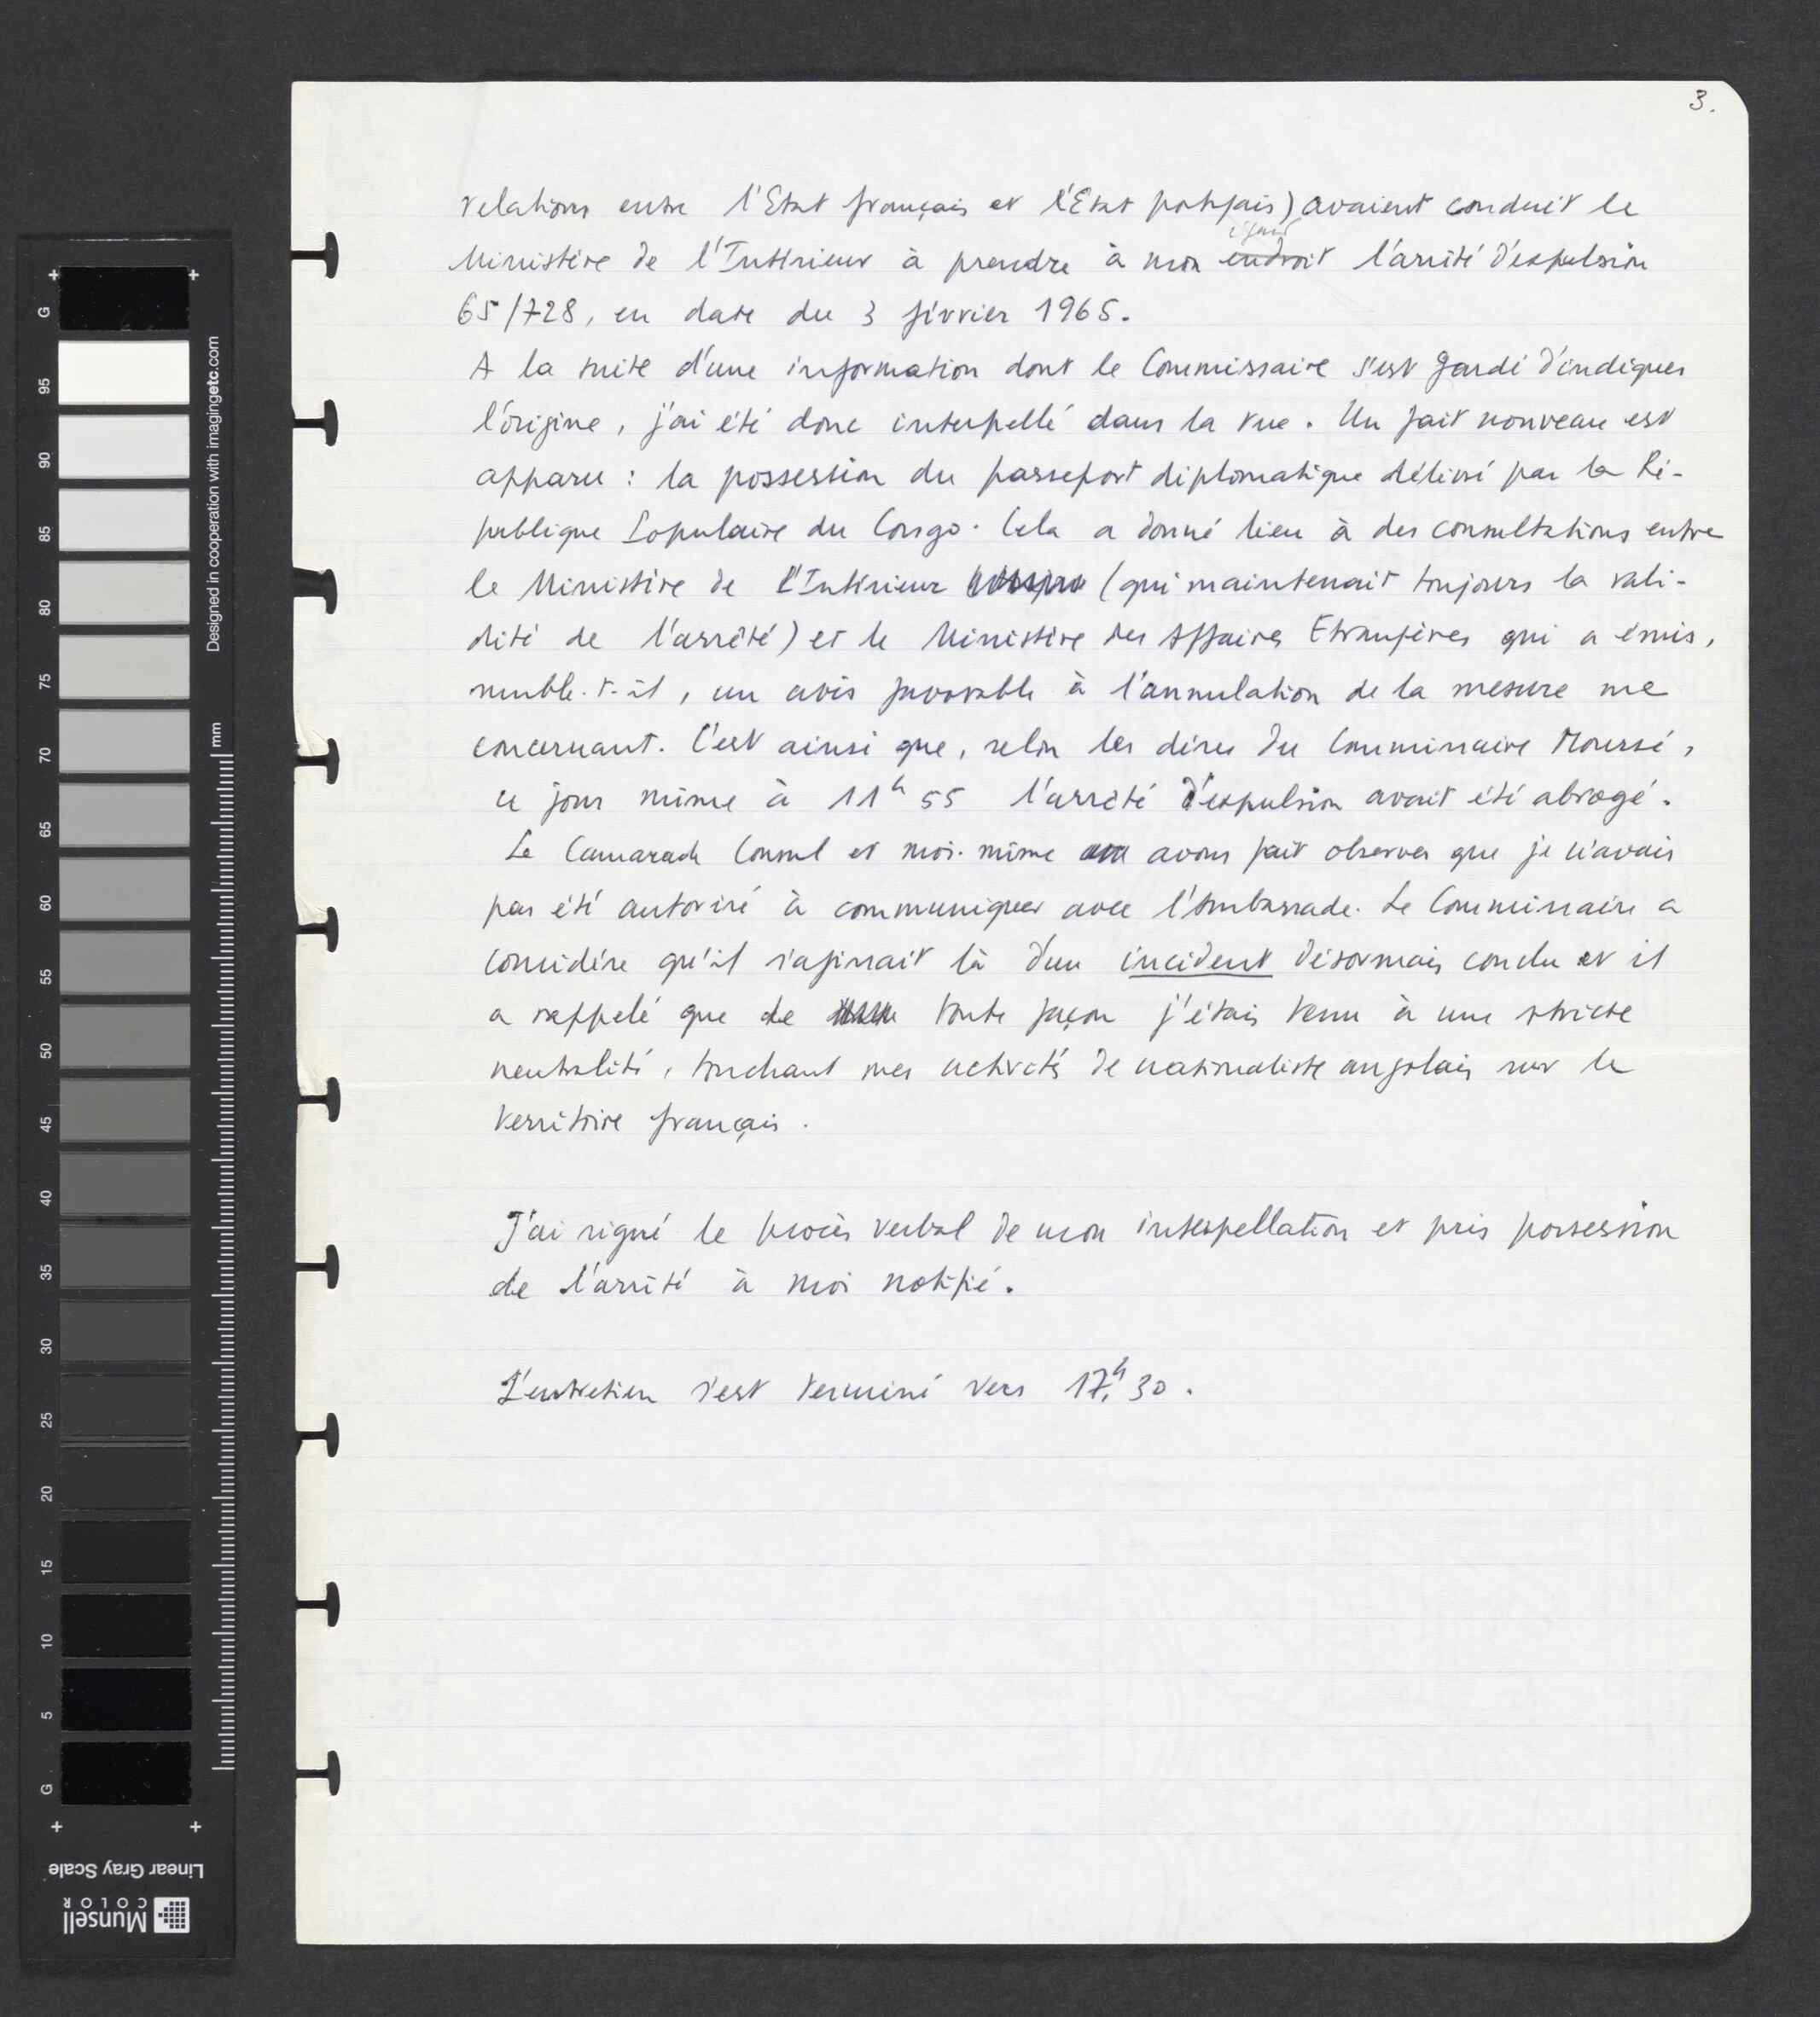 3.
relations entre l'Etat français et l'Etat portugais) avaient conduit le
égard
Ministère de l'Intérieur à prendre à mon endroit l'arrêté d'expulsion
65/728, en date du 3 février 1965.
A la suite d'une information dont le Commissaire s'est gardé d'indiquer
l'origine, j'ai été donc interpellé dans la rue. Un fait nouveau est
apparu : la possession du passeport diplomatique délivré par la Ré-
publique Populaire du Congo. Cela a donné lieu à des consultations entre
le Ministère de l'Intérieur (qui maintenait toujours la vali-
dité de l'arrêté) et le Ministère des Affaires Etrangères qui a émis,
semble-t-il, un avis favorable à l'annulation de la mesure me
concernant. C'est ainsi que, selon les dires du Commissaire Moursé,
ce jour même à 11h 55 l'arrêté d'expulsion avait été abrogé.
Le Camarade Consul et moi-même avons fait observer que je n'avais
pas été autorisé à communiquer avec l'Ambassade. Le Commissaire a
considéré qu'il s'agissait là d'un incident désormais conclu et il
a rappelé que de toute façon j'étais tenu à une stricte
neutralité, touchant mes activités de nationaliste angolais sur le
territoire français.
J'ai signé le procès verbal de mon interpellation et pris possession
de l'arrêté à moi notifié.
L'entretien s'est terminé vers 17h 30.
Designed in cooperation with imagingetc.com
mm
G 95 90 85 80 75 70 65 60 55 50 45 40 35 30 25 20 15 10 5 G
Linear Gray Scale
Munsell
COLOR